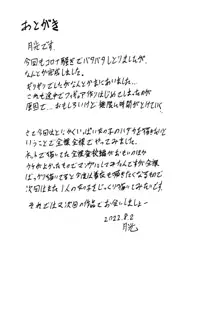 あとがき
月光です。
今回もコロナ騒ぎでバタバタしとりましたが、
なんとか完成しました。
ギリギリでしたがなんとかまにあいました…
これも途中でフィギュア作りはじめてしまったのが
原因で…おもしろいけど無限に時間がとけていく
さて今回はとにかくいっぱい女の子のハダカを描きたいと
いうことで全裸全裸でやってみました。
ネットで描いてた全裸登校編がおもいのほか
ウケがよかったものでマンガにしてみたんですが全裸
ばっかり描いてると今度は着衣も描きたくなるもので
次回はまた1人の女の子をじっくり描いてみたいです。
それではまた次回の作品でお会いしましょー
2022.8.2
月光